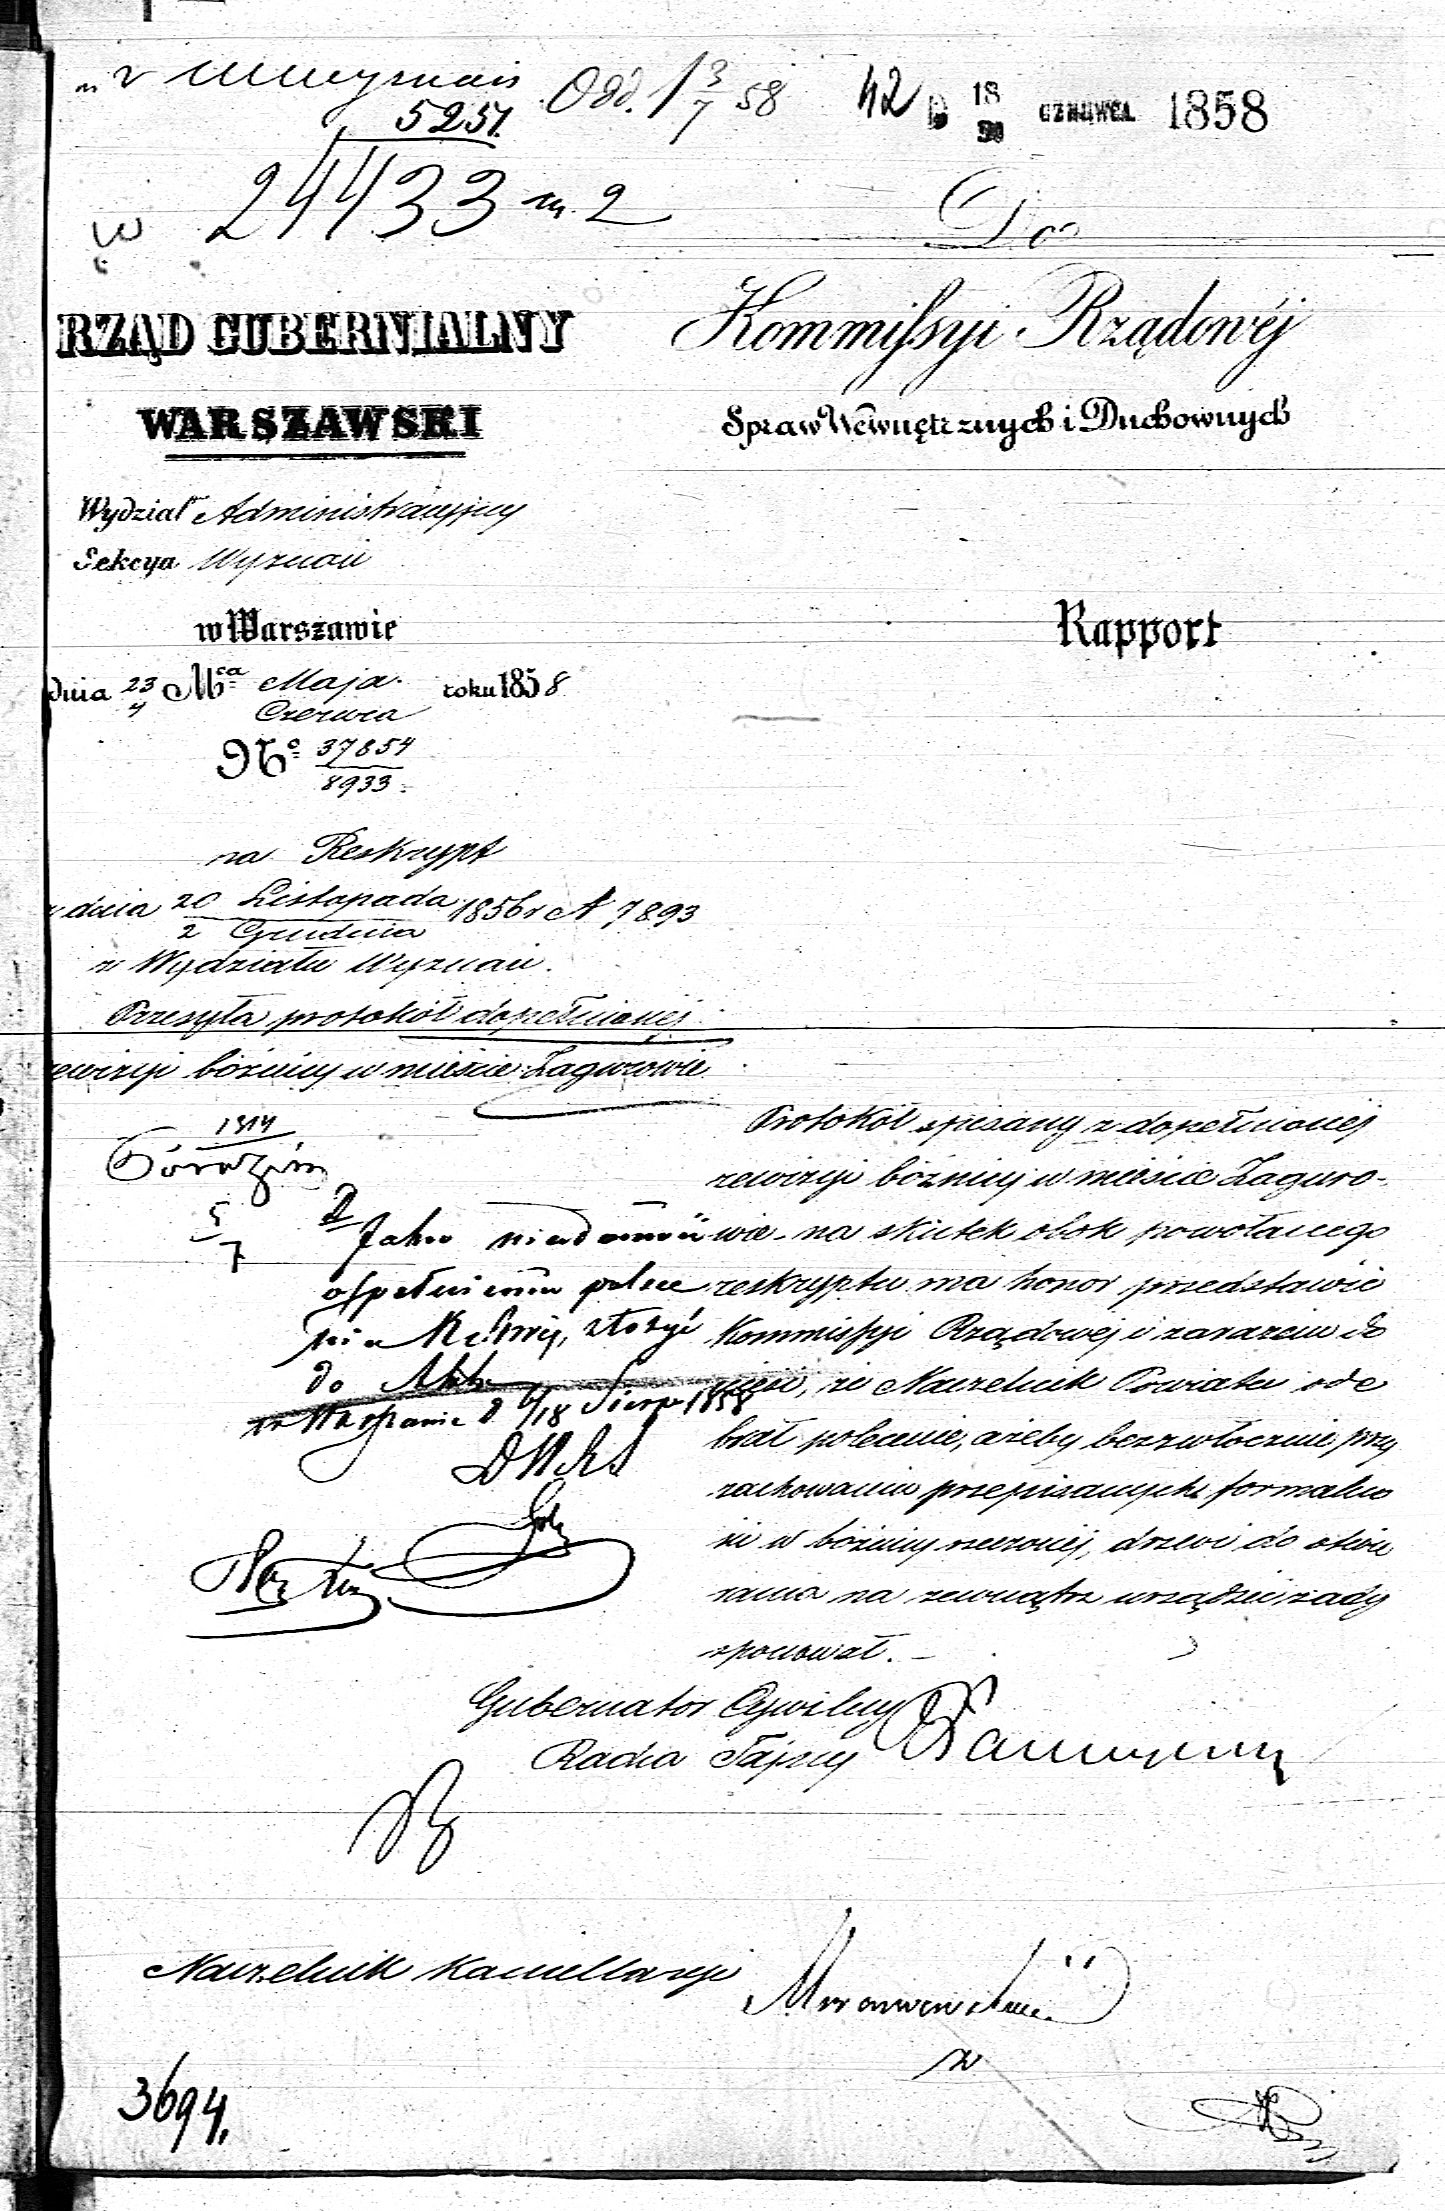 Odd. 1 3/7 58
42 D 18/30 CZERWCA 1858
5251.
24433 m. 2
Do
RZĄD GUBERNIALNY
WARSZAWSKI
Kommissyi Rządowéj
Spraw Wewnętrznych i Duchownych
Wydział Administracyjny
Sekcya Wyznań
w Warszawie
Rapport
dnia 23/4 Mca Maja/Czerwca roku 1858
No 37854/8933.
na Reskrypt
z dnia 20 Listopada/2 Grudnia 1856 r N 7893
z Wydziału Wyznań.
Przesyła protokół dopełnionej
rewizyi bóżnicy w mieście Zagurowie
1314
5/7
Jako
do Akt
w Warszawie d 6/18 Sierp 1858
Protokół spisany z dopełnionéj
rewizyi bóżnicy w mieście Zaguro-
wie na skutek obok powołanego
reskryptu ma honor przedstawić
Kommissyi Rządowéj i zarazem do
nieść, że Naczelnik Powiatu ode
brał polecenie, ażeby bezzwłocznie przy
zachowaniu przepisanych formalno
ści w bóżnicy rzeczonéj, drzwi do otwie
rania na zewnątrz urządzić zady
sponował. –
Gubernator Cywilny
Radca Tajny
Naczelnik Kancellaryi
3694.